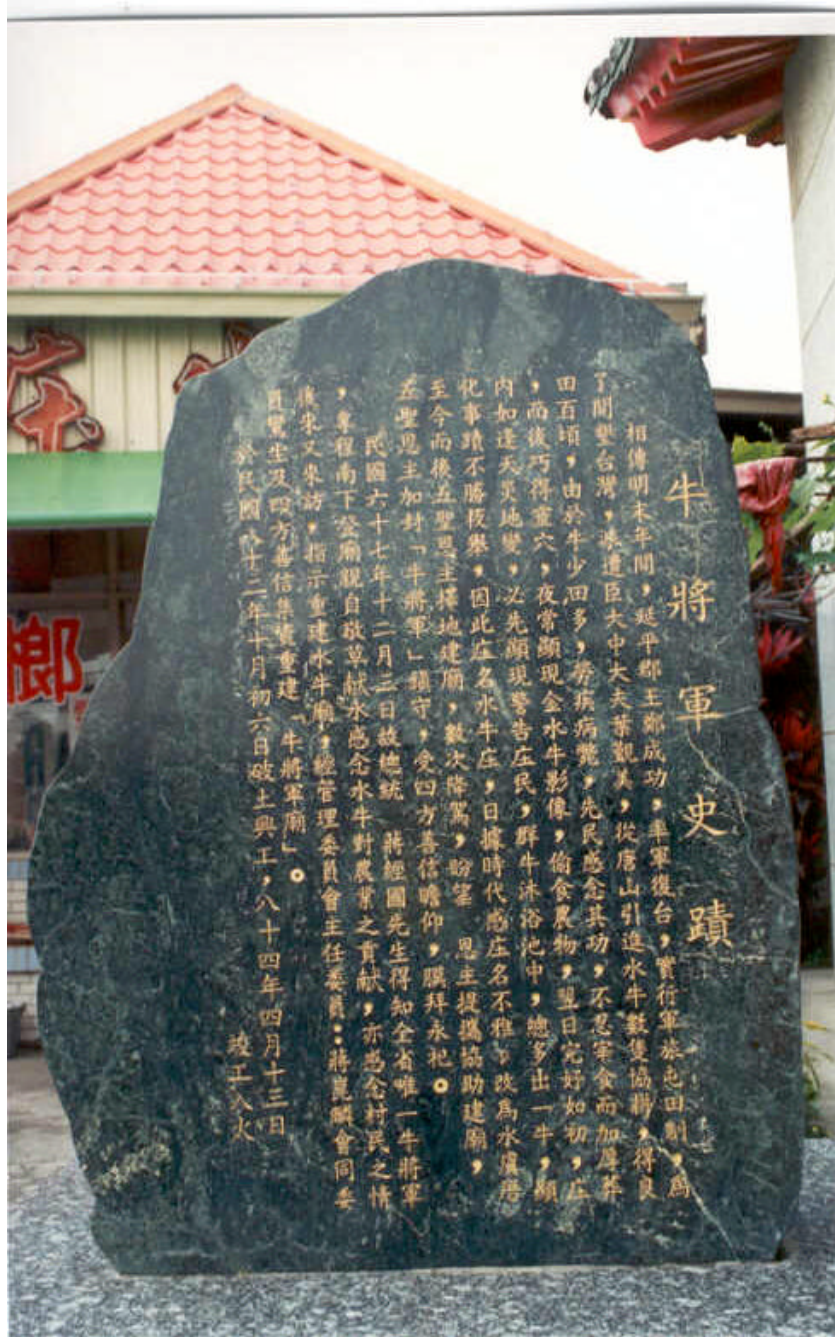 牛將軍史蹟
相傳明末年間,延平郡王鄭成功,率軍復台,實行軍旅屯田制,為
了開墾台灣,派遣臣大中大夫葉觀美,從唐山引進水牛數隻協耕,得良
田百頃,由於牛少田多,勞疾病斃,先民感念其功,不忍宰食而加厚葬
,而後巧得靈穴,夜常顯現金水牛影像,偷食農物,翌日完好如初,庄
內如逢天災地變,必先顯現警告庄民,群牛沐浴池中,總多出一牛,顯
化事蹟不勝枚舉,因此庄名水牛庄,日據時代感庄名不雅,改為水虞厝
至今而後五聖恩主擇地建廟,數次降駕,盼望 恩主提攜協助建廟,
五聖恩主加封「牛將軍」鎮守,受四方善信瞻仰,膜拜永祀。
民國六十七年十二月二日故總統 蔣經國先生得知全省唯一牛將軍
,專程南下登廟親自敬草献水感念水牛對農業之貢献,亦感念村民之情
後來又來訪,指示重建水牛廟,經管理委員會主任委員:蔣崑麟會同委
員醫生及四方善信集資重建「牛將軍廟」。
於民國八十二年十月初六日破土興工,八十四年四月十三日
竣工入火
榔